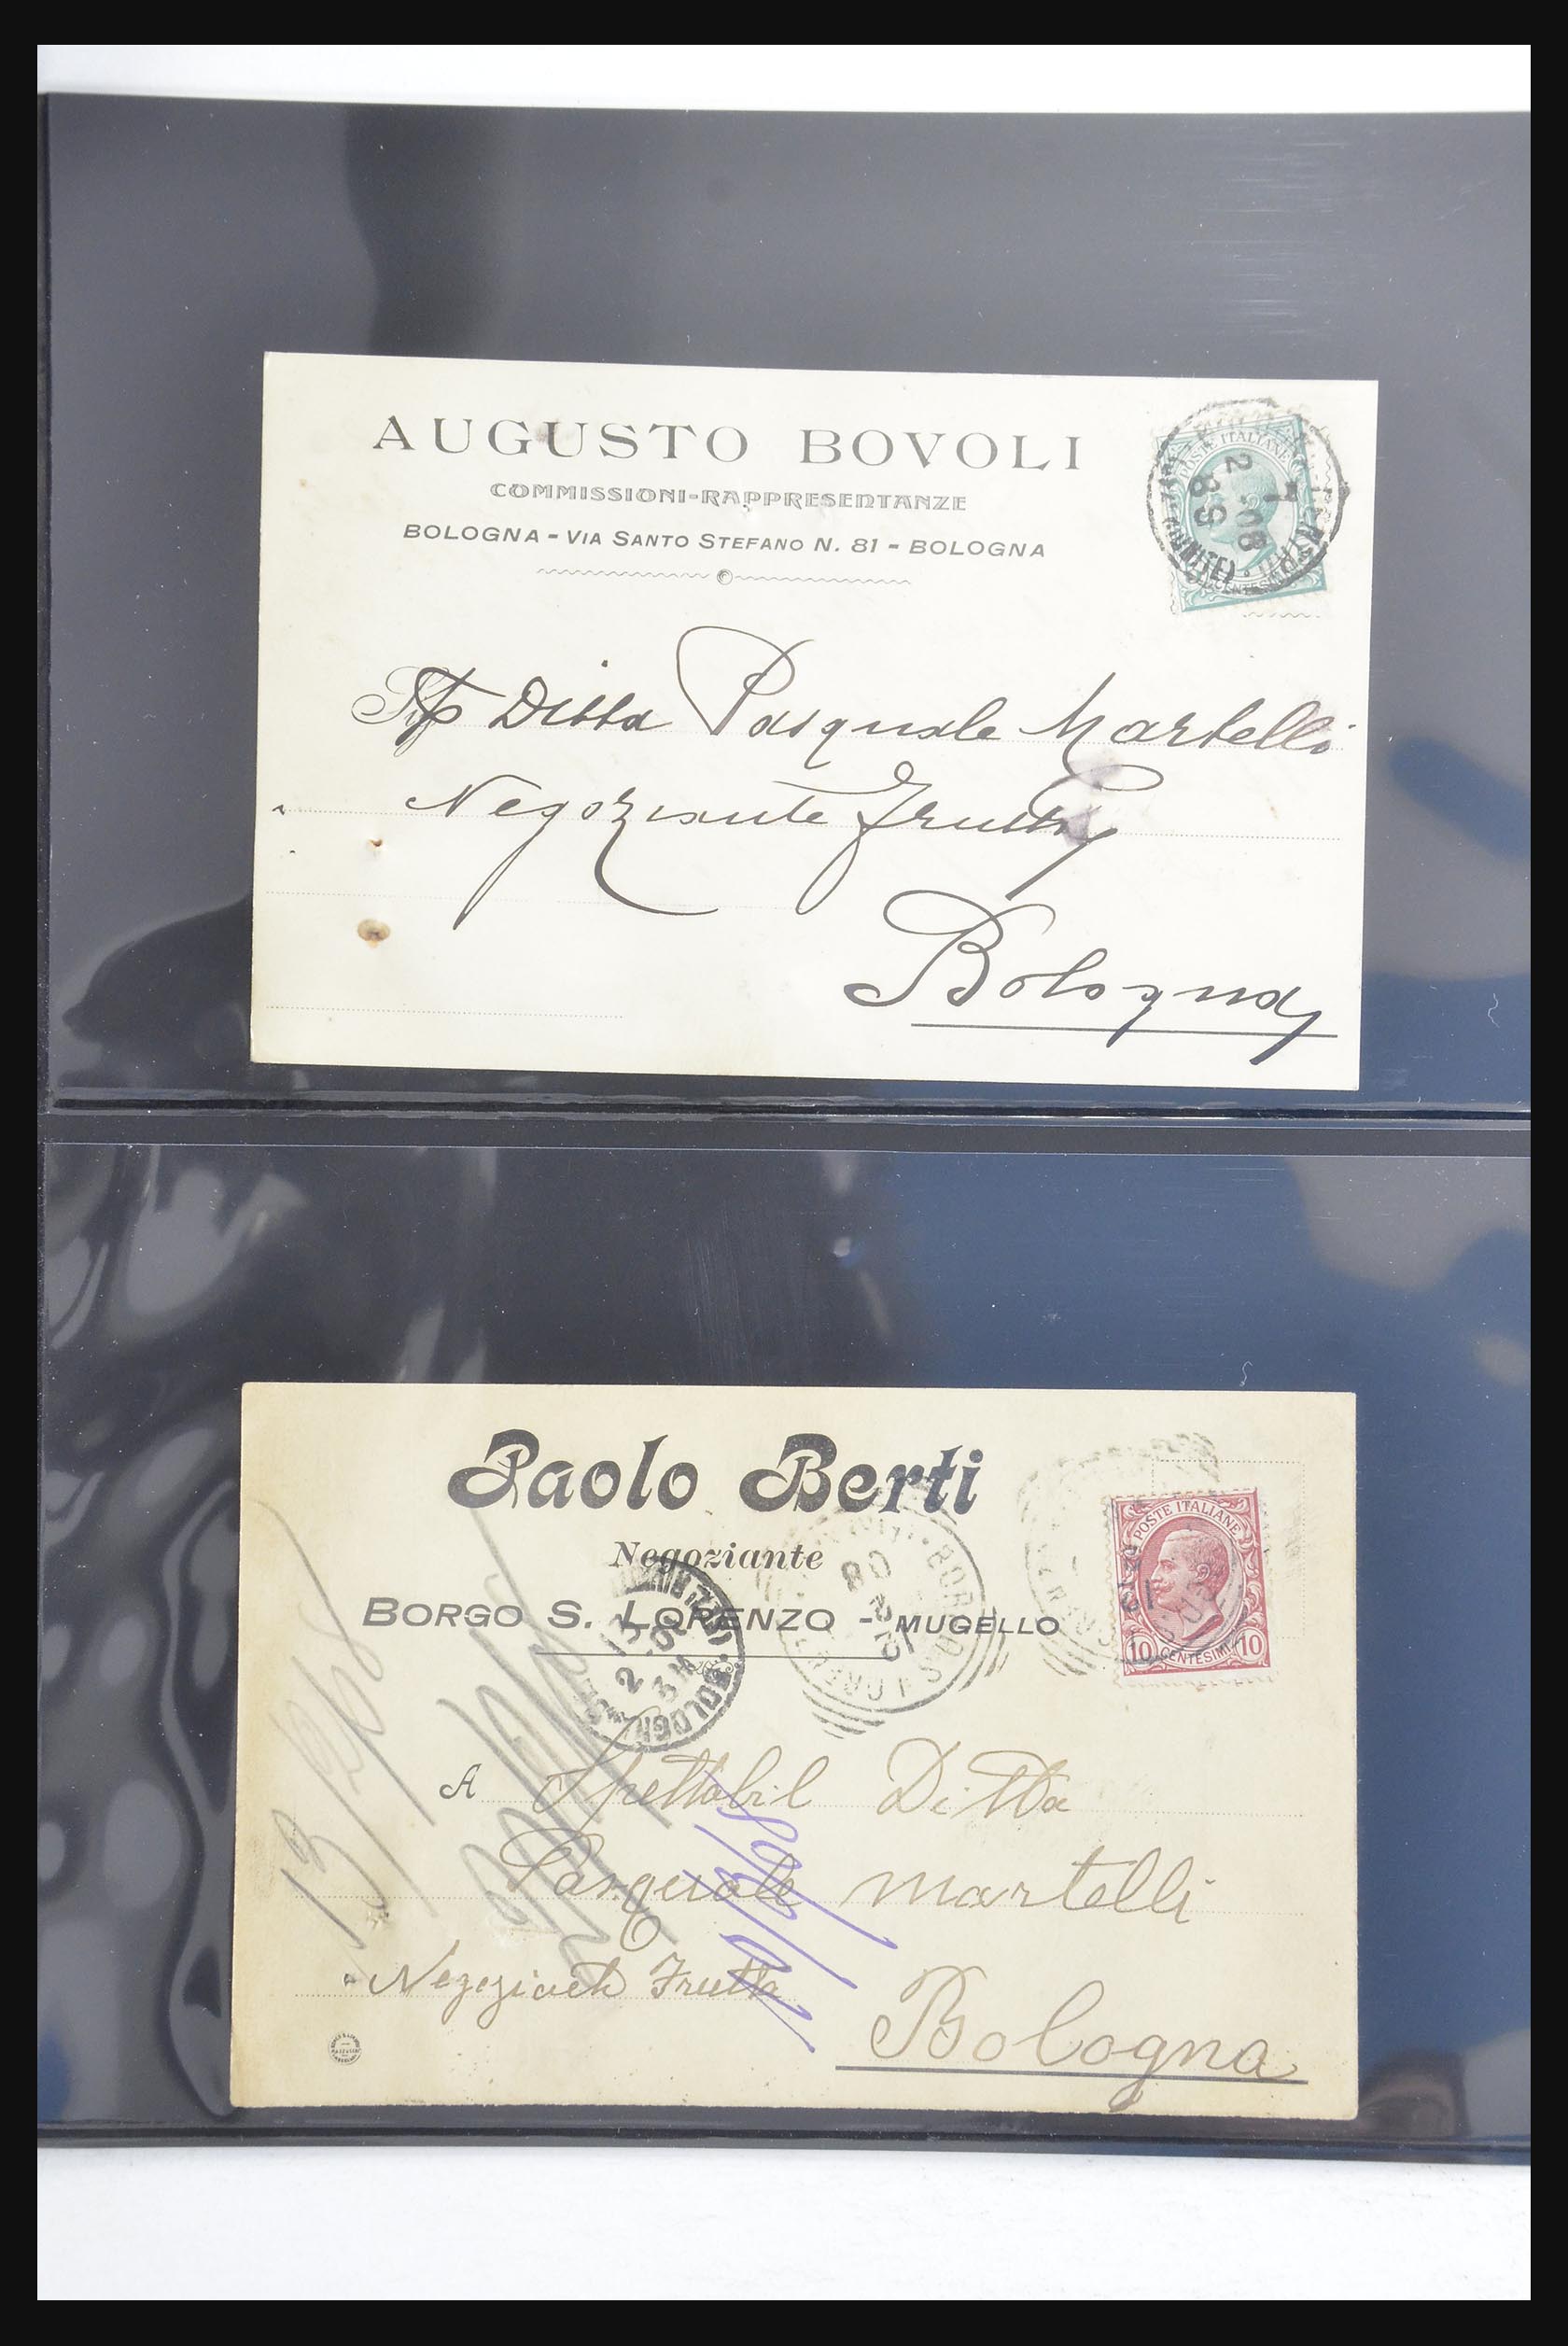 AUGUSTO BOVOLI
COMMISSIONI-RAPPRESENTANZE
BOLOGNA - VIA SANTO STEFANO N. 81 - BOLOGNA
POSTE ITALIANE
7
2 . 08
8 S
Ditta Pasquale Martelli
Negoziante Frutta
Bologna
Paolo Berti
Negoziante
BORGO S. LORENZO - MUGELLO
POSTE ITALIANE
10 CENTESIMI 10
13
2
A Spettabil Ditta
Pasquale Martelli
Negoziante Frutta
Bologna
13/2/08